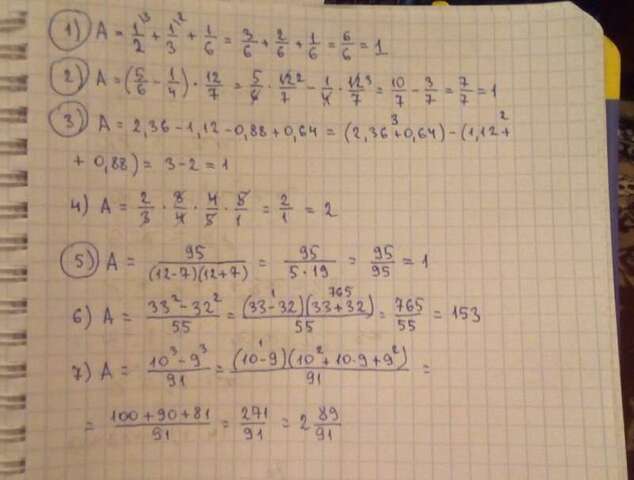 1) A = 1/2 + 1/3 + 1/6 = 3/6 + 2/6 + 1/6 = 6/6 = 1
2) A = (5/6 - 1/4) · 12/7 = 5/6 · 12/7 - 1/4 · 12/7 = 10/7 - 3/7 = 7/7 = 1
3) A = 2,36 - 1,12 - 0,88 + 0,64 = (2,36 + 0,64) - (1,12 +
+ 0,88) = 3 - 2 = 1
4) A = 2/3 · 8/4 · 4/5 · 5/1 = 2/1 = 2
5) A = 95/((12-7)(12+7)) = 95/(5·19) = 95/95 = 1
6) A = (33² - 32²)/55 = ((33-32)(33+32))/55 = 765/55 = 153
7) A = (10³ - 9³)/91 = ((10-9)(10² + 10·9 + 9²))/91 =
= (100 + 90 + 81)/91 = 271/91 = 2 89/91